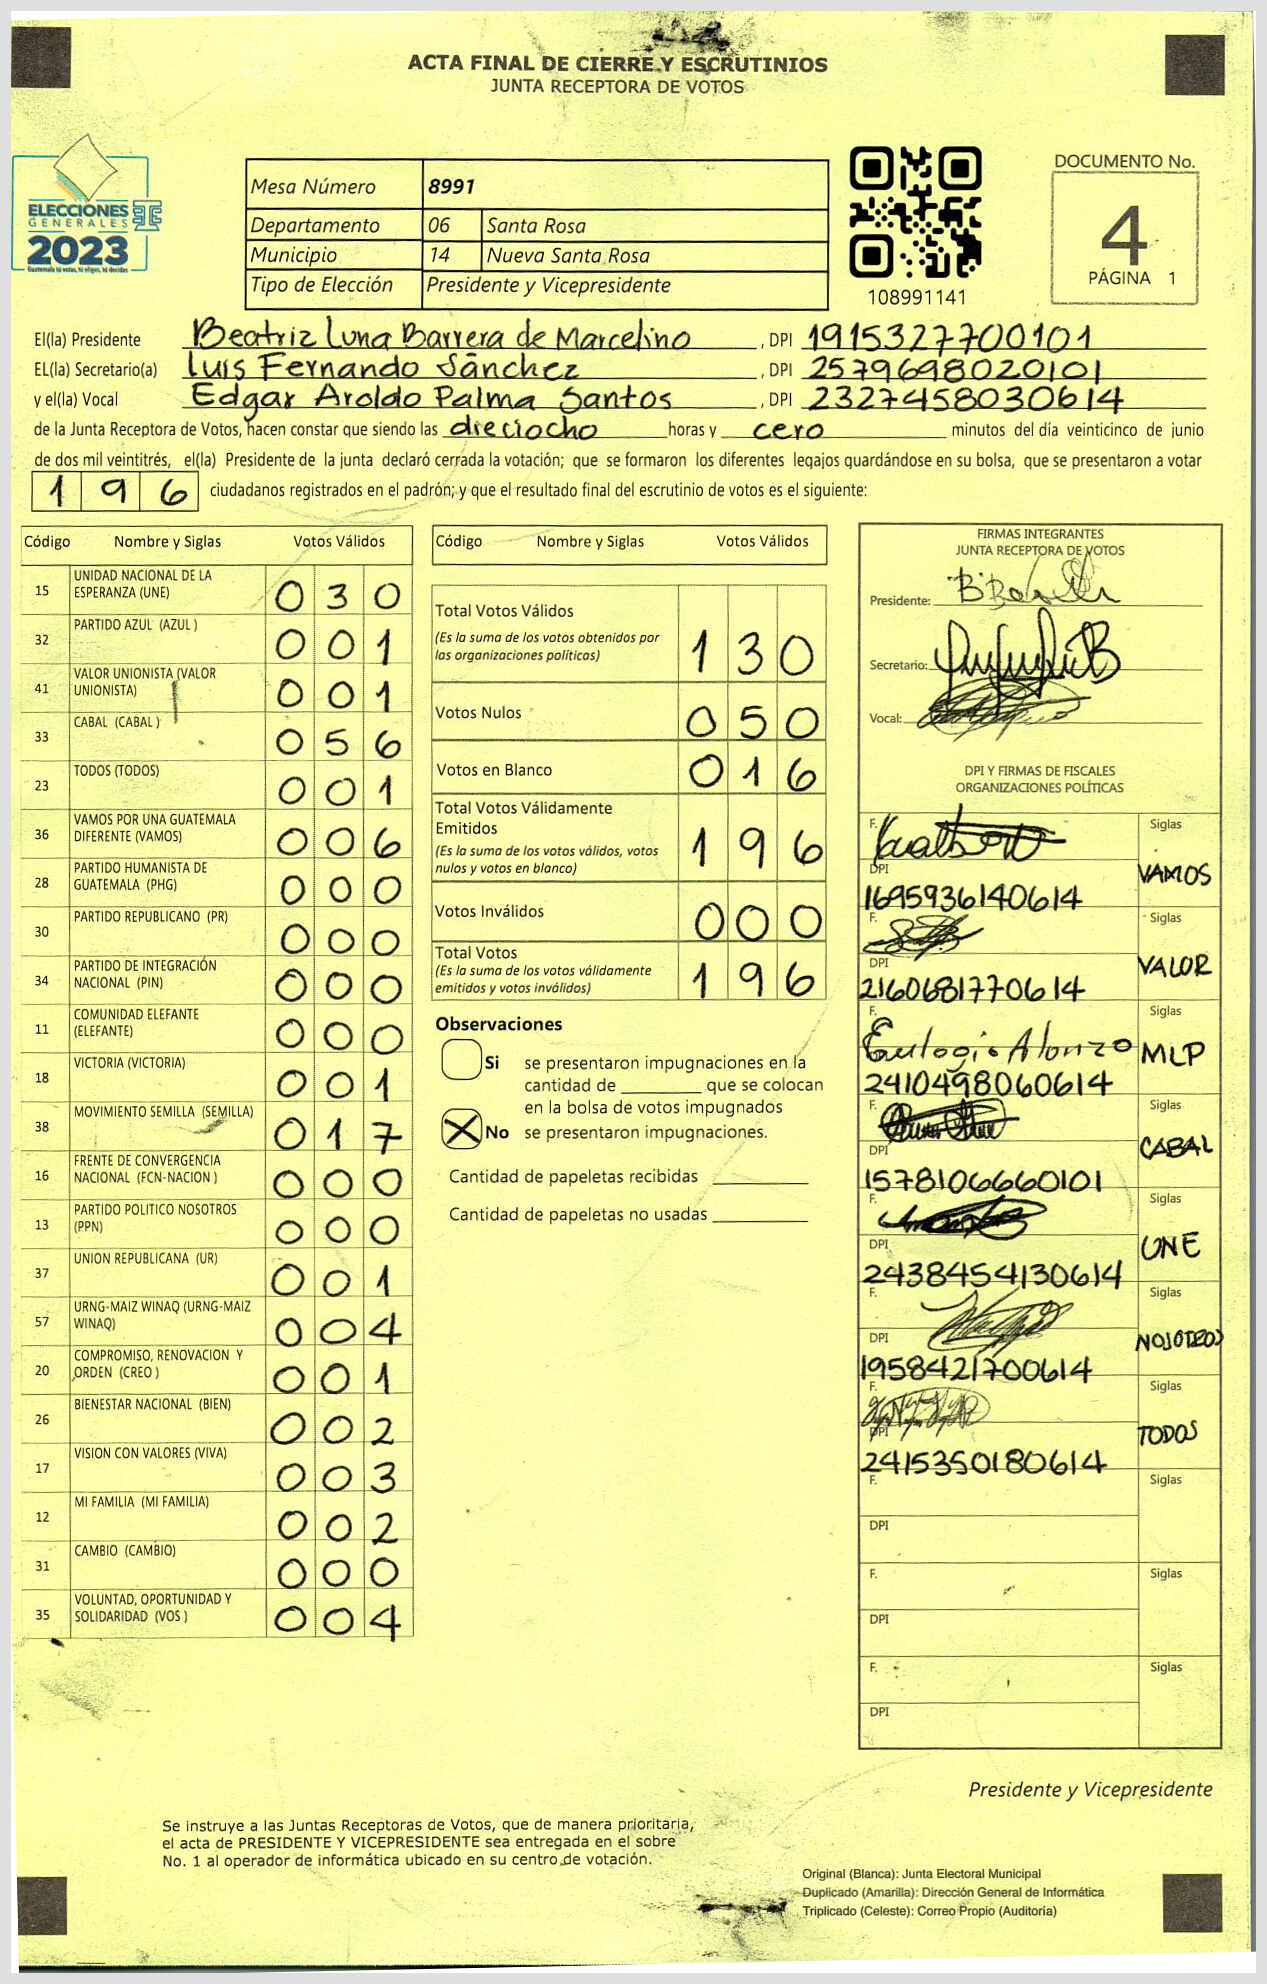 ACTA FINAL DE CIERRE Y ESCRUTINIOS
JUNTA RECEPTORA DE VOTOS
ELECCIONES
GENERALES
2023
Guatemala tú votas, tú eliges, tú decides
Mesa Número 8991
Departamento 06 Santa Rosa
Municipio 14 Nueva Santa Rosa
Tipo de Elección Presidente y Vicepresidente
108991141
DOCUMENTO No.
4
PÁGINA 1
El(la) Presidente Beatriz Luna Barrera de Marcelino, DPI 1915327700101
EL(la) Secretario(a) Luis Fernando Sánchez, DPI 2579698020101
y el(la) Vocal Edgar Aroldo Palma Santos, DPI 2327458030614
de la Junta Receptora de Votos, hacen constar que siendo las dieciocho horas y cero minutos del día veinticinco de junio
de dos mil veintitrés, el(la) Presidente de la junta declaró cerrada la votación; que se formaron los diferentes legajos guardándose en su bolsa, que se presentaron a votar
196 ciudadanos registrados en el padrón; y que el resultado final del escrutinio de votos es el siguiente:
Código Nombre y Siglas Votos Válidos
15 UNIDAD NACIONAL DE LA ESPERANZA (UNE) 030
32 PARTIDO AZUL (AZUL ) 001
41 VALOR UNIONISTA (VALOR UNIONISTA) 001
33 CABAL (CABAL ) 056
23 TODOS (TODOS) 001
36 VAMOS POR UNA GUATEMALA DIFERENTE (VAMOS) 006
28 PARTIDO HUMANISTA DE GUATEMALA (PHG) 000
30 PARTIDO REPUBLICANO (PR) 000
34 PARTIDO DE INTEGRACIÓN NACIONAL (PIN) 000
11 COMUNIDAD ELEFANTE (ELEFANTE) 000
18 VICTORIA (VICTORIA) 001
38 MOVIMIENTO SEMILLA (SEMILLA) 017
16 FRENTE DE CONVERGENCIA NACIONAL (FCN-NACION ) 000
13 PARTIDO POLITICO NOSOTROS (PPN) 000
37 UNION REPUBLICANA (UR) 001
57 URNG-MAIZ WINAQ (URNG-MAIZ WINAQ) 004
20 COMPROMISO, RENOVACION Y ORDEN (CREO ) 001
26 BIENESTAR NACIONAL (BIEN) 002
17 VISION CON VALORES (VIVA) 003
12 MI FAMILIA (MI FAMILIA) 002
31 CAMBIO (CAMBIO) 000
35 VOLUNTAD, OPORTUNIDAD Y SOLIDARIDAD (VOS ) 004
Código Nombre y Siglas Votos Válidos
Total Votos Válidos 130
(Es la suma de los votos obtenidos por
las organizaciones políticas)
Votos Nulos 050
Votos en Blanco 016
Total Votos Válidamente
Emitidos 196
(Es la suma de los votos válidos, votos
nulos y votos en blanco)
Votos Inválidos 000
Total Votos 196
(Es la suma de los votos válidamente
emitidos y votos inválidos)
Observaciones
Si se presentaron impugnaciones en la
cantidad de ________ que se colocan
en la bolsa de votos impugnados
X No se presentaron impugnaciones.
Cantidad de papeletas recibidas
Cantidad de papeletas no usadas
FIRMAS INTEGRANTES
JUNTA RECEPTORA DE VOTOS
Presidente:
Secretario:
Vocal:
DPI Y FIRMAS DE FISCALES
ORGANIZACIONES POLÍTICAS
F. Siglas
DPI 1695936140614 VAMOS
F. Siglas
DPI 2160681770614 VALOR
F. Eulogio Alonzo Siglas
2410498060614 MLP
F. Siglas
DPI 1578106660101 CABAL
F. Siglas
DPI 2438454130614 UNE
F. Siglas
DPI 1958421700614 NOSOTROS
F. Siglas
DPI 2415350180614 TODOS
F. Siglas
DPI
F. Siglas
DPI
F. Siglas
DPI
Presidente y Vicepresidente
Se instruye a las Juntas Receptoras de Votos, que de manera prioritaria,
el acta de PRESIDENTE Y VICEPRESIDENTE sea entregada en el sobre
No. 1 al operador de informática ubicado en su centro de votación.
Original (Blanca): Junta Electoral Municipal
Duplicado (Amarilla): Dirección General de Informática
Triplicado (Celeste): Correo Propio (Auditoría)